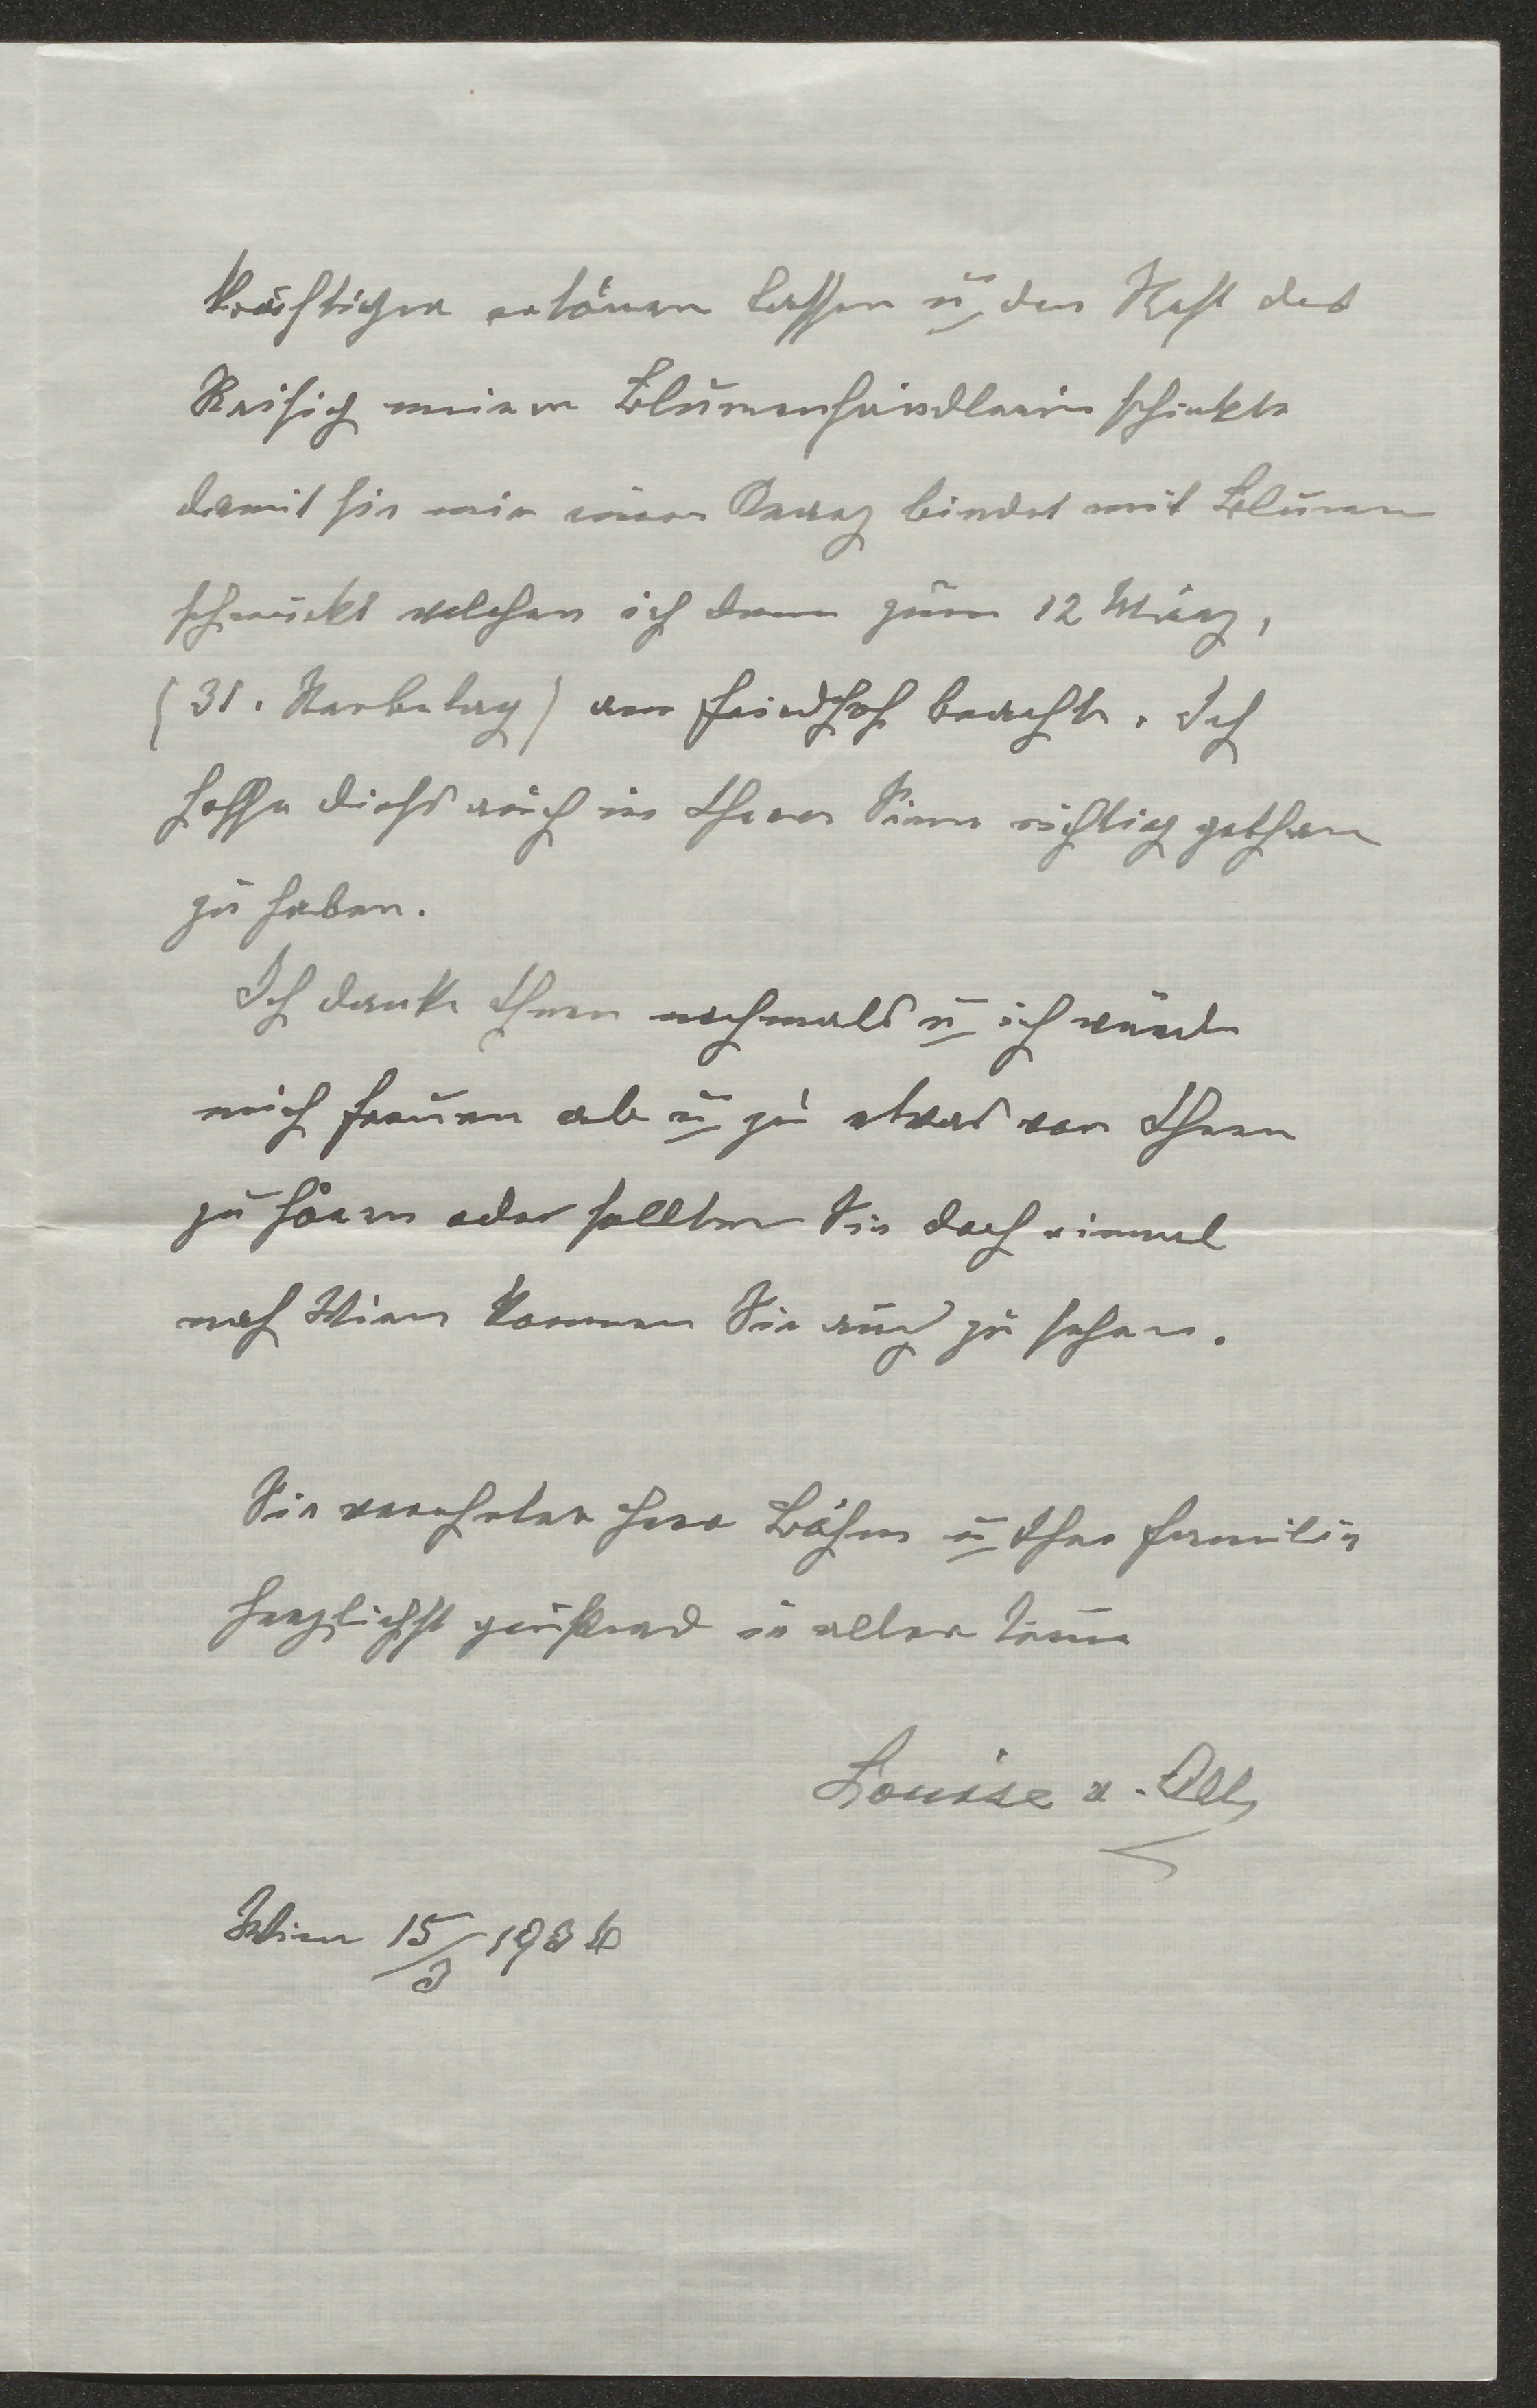 kräftigen ertönen lassen u den Rest des
Reisig meiner Blumenhändlerin schickte
damit sie mir einen Kranz bindet mit Blumen
schmückt welchen ich dann zum 12 März,
(31. Sterbetag) am Friedhof brachte. Ich
hoffe dies auch in Ihrem Sinne richtig gethan
zu haben.
Ich danke Ihnen nochmals u ich würde
mich freuen ab u zu etwas von Ihnen
zu hören oder sollten Sie doch einmal
nach Wien kommen Sie auch zu sehen.
Sie verehrter Herr Böhm u Ihre Familie
herzlichst grüßend in alter Treue
Louise v.
Wien 15/3 1936